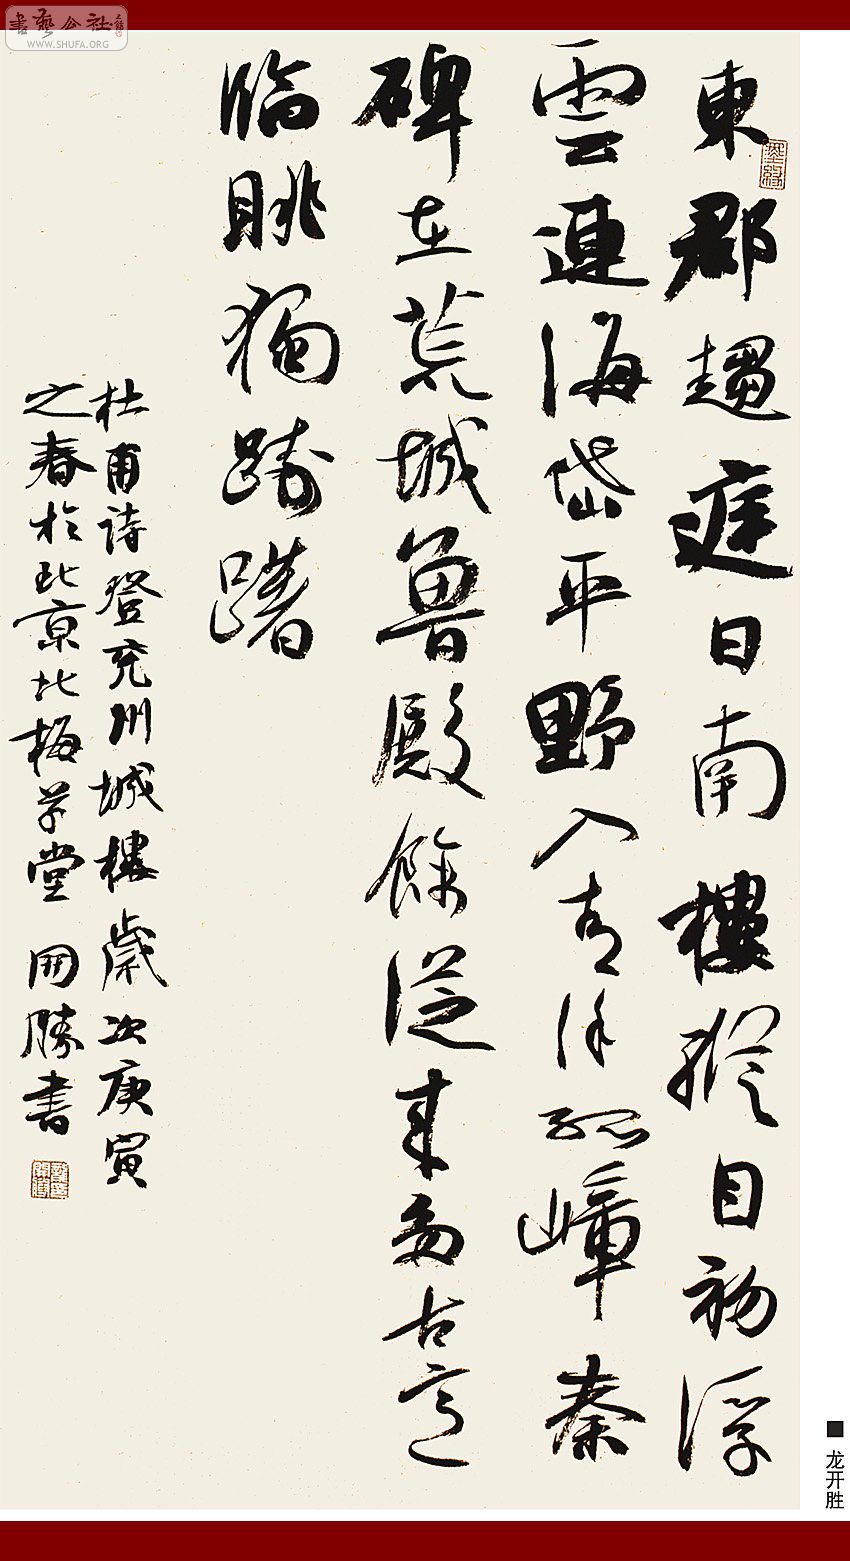 書藝公社
WWW.SHUFA.ORG
東郡趨庭日南樓縱目初浮
雲連海岱平野入青徐孤嶂秦
碑在荒城魯殿餘從來多古意
臨眺獨躊躇
杜甫詩登兗州城樓歲次庚寅
之春於北京北梅草堂 開勝書
■ 龙开胜